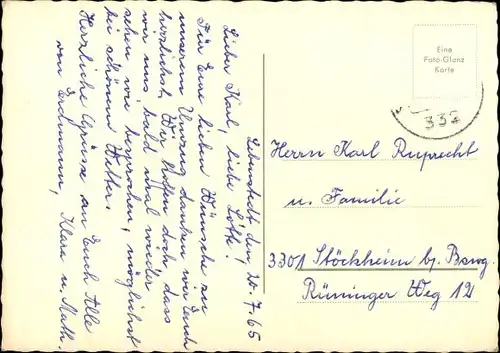 Lebenstedt den 20.7.65
Lieber Karl, liebe Lotte!
Für Eure lieben Wünsche zu
unserem Umzug danken wir Euch
herzlichst. Wir hoffen doch dass
wir uns bald mal wieder
sehen wie besprochen, möglichst
bei schönem Wetter.
Herzliche Grüsse an Euch Alle
von Erdmann, Klara u. Math.
Eine
Foto-Glanz
Karte
332
Herrn Karl Ruprecht
u. Familie
3301 Stöckheim b. Bswg.
Rüninger Weg 12